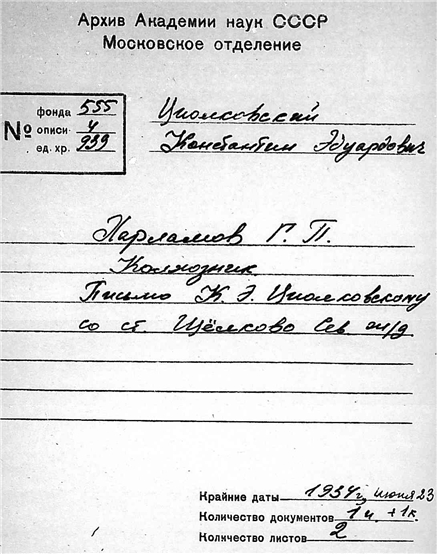 Архив Академии наук СССР
Московское отделение
№ фонда 555
описи 4
ед. хр. 939
Циолковский
Константин Эдуардович
Харламов Г. П.
Колхозник
Письмо К. Э. Циолковскому
со ст. Щёлково Сев ж/д
Крайние даты 1934 г. июня 23
Количество документов 1 + 1к.
Количество листов 2